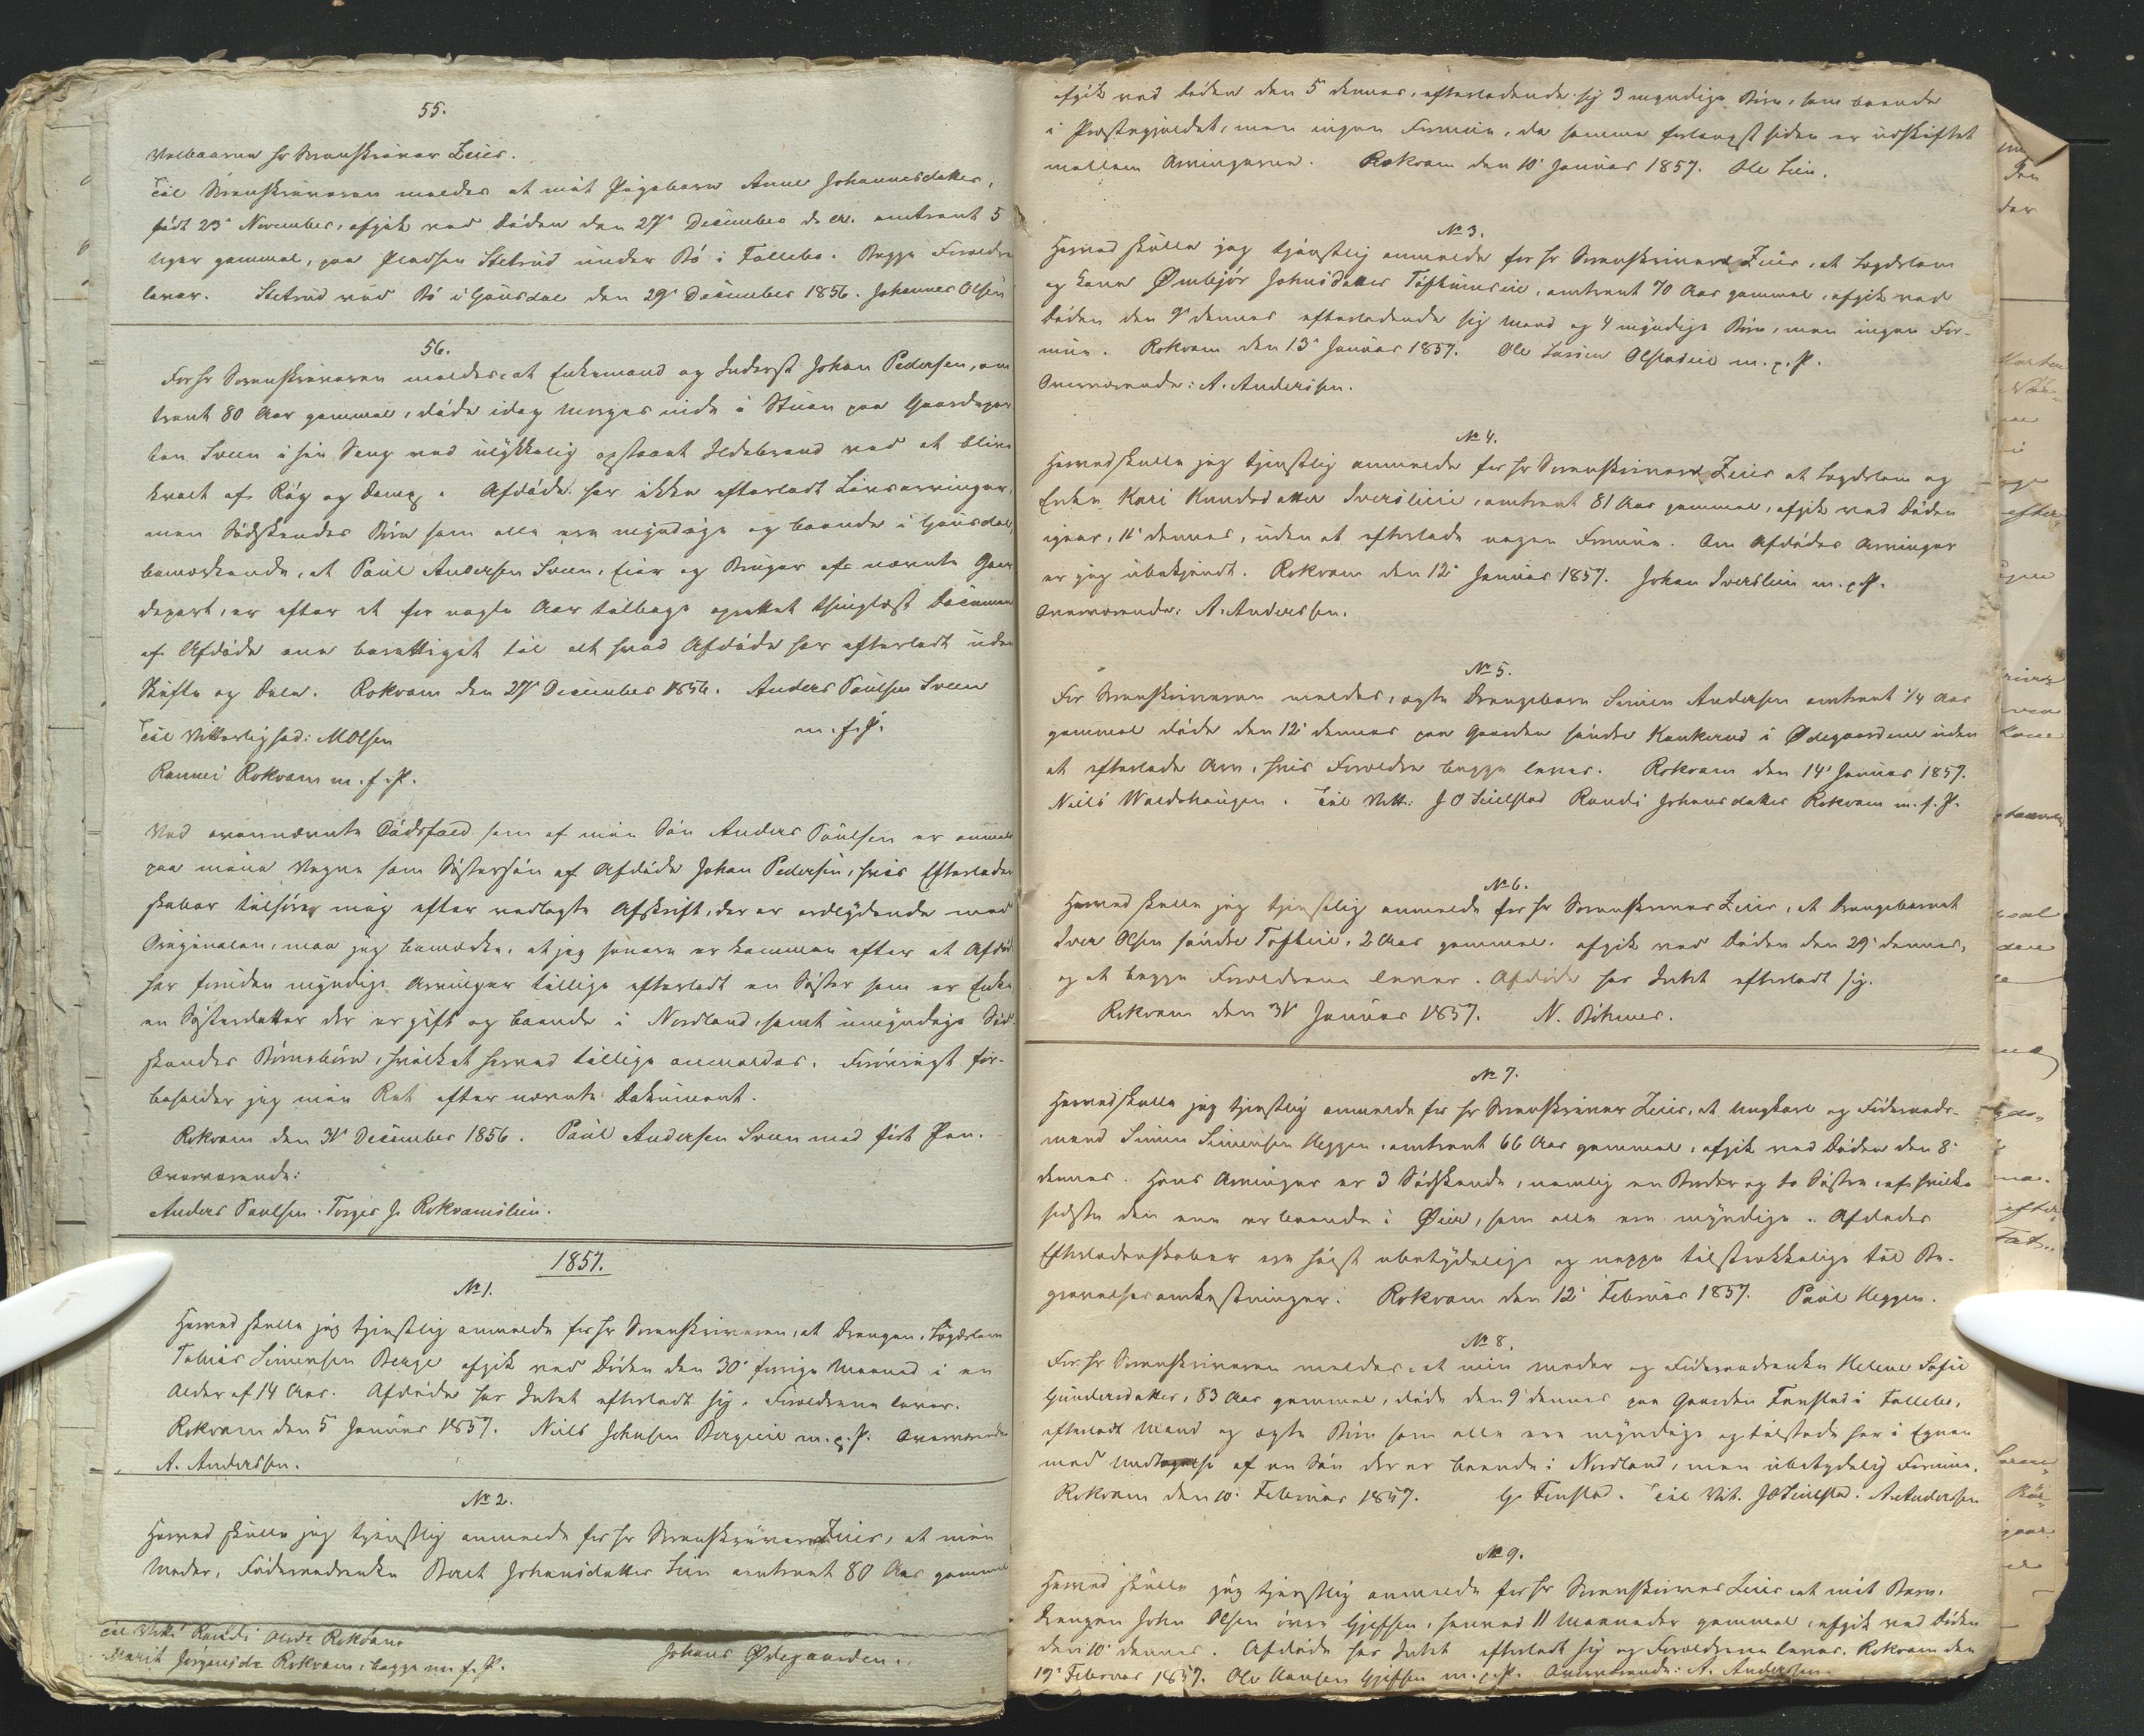 55.
Velbaarne Hr Sorenskriver Zeier.
Til Sorenskriveren meldes at mit Pigebarn Anne Johannesdatter,
født 23de November, afgik ved Døden den 27de December d. A. omtrent 5
Uger gammel, paa Pladsen Stetrud under Bø i Follebo. Begge Forældre
lever. Stetrud ved Bø i Gausdal den 29de December 1856. Johannes Olsen
56.
For Hr Sorenskriveren meldes, at Enkemand og Inderst Johan Pedersen, om
trent 80 Aar gammel, døde idag Morges inde i Stuen paa Gaardpar
ten Sveen i sin Seng ved ulykkelig opstaaet Ildebrand ved at blive
kvalt af Røg og Damp. Afdøde har ikke efterladt Livsarvinger,
men Sødskendes Børn som alle ere myndige og boende i Gausdal,
bemærkende, at Paul Andersen Sveen, Eier og Bruger af nævnte Gaar
depart, er efter et for nogle Aar tilbage oprettet thinglæst Documen
af Afdøde ene berettiget til alt hvad Afdøde har efterladt uden
Skifte og Deel. Rokvam den 27de December 1856. Anders Paulsen Sveen
m. f. P.
Til Vitterlighed: MOlsen
Rannei Rokvam m. f. P.
Ved ovennævnte Dødsfald som af min Søn Anders Paulsen er anmeldt
paa mine Vegne som Søstersøn af Afdøde Johan Pedersen, hvis Efterladen
skaber tilhører mig efter vedlagte Afskrift, der er ordlydende med
Originalen, maa jeg bemærke, at jeg senere er kommen efter at Afdøde
har foruden myndige Arvinger tillige efterladt en Søster som er Enke
en Søsterdatter der er gift og boende i Nordland, samt umyndige Sød
skendes Børnebørn, hvilket herved tillige anmeldes. Forøvrigt for-
beholder jeg min Ret efter nævnte Dokument.
Rokvam den 31te December 1856. Paul Andersen Sveen med ført Pen.
Overværende:
Anders Paulsen. Torger J. Rokvamslien.
1857.
No 1.
Herved skulle jeg tjenstlig anmelde for Hr Sorenskriveren, at Drengen, Lægdslem
Tobias Simensen Berge afgik ved Døden den 30te forrige Maaned i en
Alder af 14 Aar. Afdøde har Intet efterladt sig. Forældrene lever.
Rokvam den 5 Januar 1857. Niels Johnsen Bergeeie m. p. P. Overværende
A. Anderssen.
No 2.
Herved skulle jeg tjenstlig anmelde for Hr Sorenskriver Zeier, at min
Moder, Føderaadsenke Berit Johansdatter Lien omtrent 80 Aar gammel
Til Vitt: Randi Olsdr Rokvam
Marit Jørgensdr Rokvam, begge m. f. P.
Johans Ødegaarden.
afgik ved Døden den 5 dennes, efterladende sig 3 myndige Børn, som boende
i Præstegjeldet, men ingen Formue, da samme forlængst siden er udskiftet
mellem Arvingerne. Rokvam den 10de Januar 1857. Ole Lien.
No 3.
Herved skulle jeg tjenstlig anmelde for Hr Sorenskriver Zeier, at Lægdslem
og Kone Ømbjør Johnsdatter Toftumseie, omtrent 70 Aar gammel, afgik ved
Døden den 9de dennes efterladende sig Mand og 4 myndige Børn, men ingen For-
mue. Rokvam den 13de Januar 1857. Ole Larsen Olstadeie m. p. P.
Overværende: A. Anderssen.
No 4.
Herved skulle jeg tjenstlig anmelde for Hr Sorenskriver Zeier at Lægdslem og
Enke Kari Knudsdatter Iverslien, omtrent 81 Aar gammel, afgik ved Døden
igaar, 11te dennes, uden at efterlade nogen Formue. Om Afdødes Arvinger
er jeg ubekjendt. Rokvam den 12te Januar 1857. Johan Iverslien m. p. P.
Overværende: A. Anderssen.
No 5.
For Sorenskriveren meldes, ægte Drengebarn Simen Andersen omtrent 1/4 Aar
gammel døde den 12te dennes paa Gaarden søndre Kankerud i Ødegaardene uden
at efterlade Arv, hvis Forældre begge lever. Rokvam den 14de Januar 1857.
Niels Woldshaugen. Til Vitt: JOLielstad Randi Johansdatter Rokvam m. f. P.
No 6.
Herved skulle jeg tjenstlig anmelde for Hr Sorenskriver Zeier, at Drengebarnet
Iver Olsen søndre Tofteeie, 2 Aar gammel, afgik ved Døden den 29de dennes,
og at begge Forældrene lever. Afdøde har Intet efterladt sig.
Rokvam den 31te Januar 1857. N. Böhmer.
No 7.
Herved skulle jeg tjenstlig anmelde for Hr Sorenskriver Zeier, at Ungkarl og Føderaads-
mand Simen Simensen Heggen, omtrent 66 Aar gammel, afgik ved Døden den 8de
dennes. Hans Arvinger er 3 Sødskende, nemlig en Broder og to Søstre, af hvilke
sidste den ene er boende i Øier, som alle ere myndige. Afdødes
Efterladenskaber ere høist ubetydelige og neppe tilstrækkelige til Be-
gravelsesomkostninger. Rokvam den 12te Februar 1857. Paul Heggen.
No 8.
For Hr Sorenskriveren meldes, at min Moder og Føderaadsenke Helene Sofie
Gundersdatter, 83 Aar gammel, døde den 9de dennes paa Gaarden Fonstad i Follebo,
efterladt Mand og ægte Børn som alle ere myndige og tilstede her i Egnen
med Undtagelse af en Søn der er boende i Nordland, men ubetydelig Formue.
Rokvam den 10de Februar 1857. G. Fonstad. Til Vit. JOLielstad. A. Anderssen
No 9.
Herved skulle jeg tjenstlig anmelde for Hr Sorenskriver Zeier at mit Barn,
Drengen John Olsen øvre Gjefsen, henved 11 Maaneder gammel, afgik ved Døden
den 10de dennes. Afdøde har Intet efterladt sig og Forældrene lever. Rokvam den
19de Februar 1857. Ole Hansen Gjefsen m. p. P. Overværende: A. Anderssen.